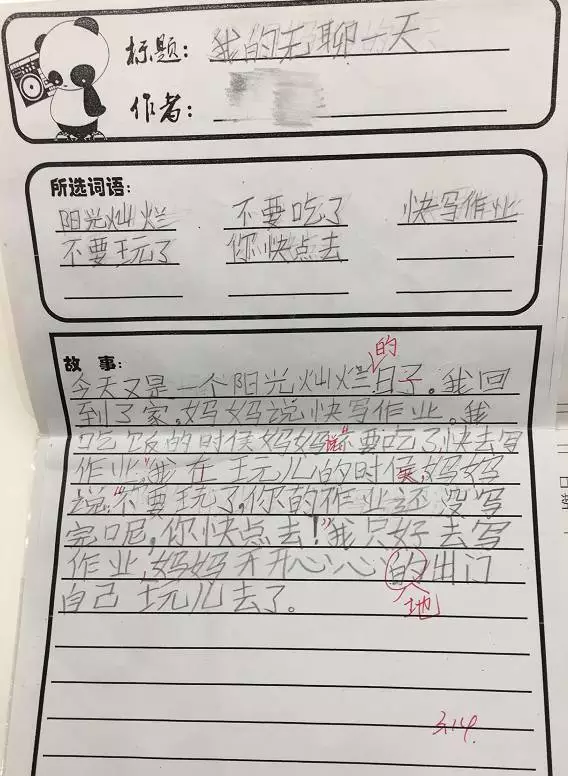 标题：我的无聊一天
作者：
所选词语：
阳光灿烂 不要吃了 快写作业
不要玩了 你快点去
的
故 事：
今天又是一个阳光灿烂日子。我回
到了家,妈妈说快写作业。我
吃饭的时候妈妈说"不要吃了,快去写
作业。"我在玩儿的时候,妈妈
说:"不要玩了,你的作业还没写
完呢,你快点去!"我只好去写
作业,妈妈开开心心的出门
自己玩儿去了。
地
3.14.